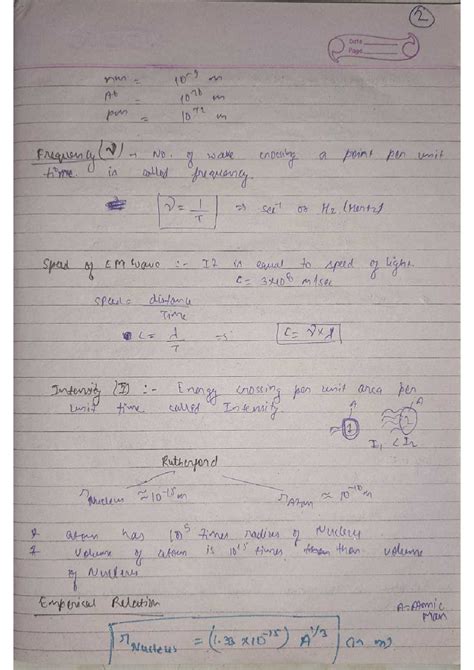 2
Date
Page
nm = 10⁻⁹ m
A° = 10⁻¹⁰ m
pm = 10⁻¹² m
Frequency (ν) :- No. of wave crossing a point per unit
time is called frequency.
ν = 1/T ⇒ sec⁻¹ or Hz (Hertz)
Speed of EM Wave :- It is equal to speed of light.
C = 3×10⁸ m/sec
speed = distance/Time
C = λ/T ⇒ C = ν×λ
Intensity (I) :- Energy crossing per unit area per
unit time called Intensity.
A A
1 2
I₁ < I₂
Rutherford
r Nucleus ≈ 10⁻¹⁵ m r Atom ≈ 10⁻¹⁰ m
atom has 10⁵ times radius of Nucleus
Volume of atom is 10¹⁵ times than volume
of Nucleus
Emperical Relation A = Atomic
Mass
r Nucleus = (1.33 × 10⁻¹⁵) A^1/3 (in m)